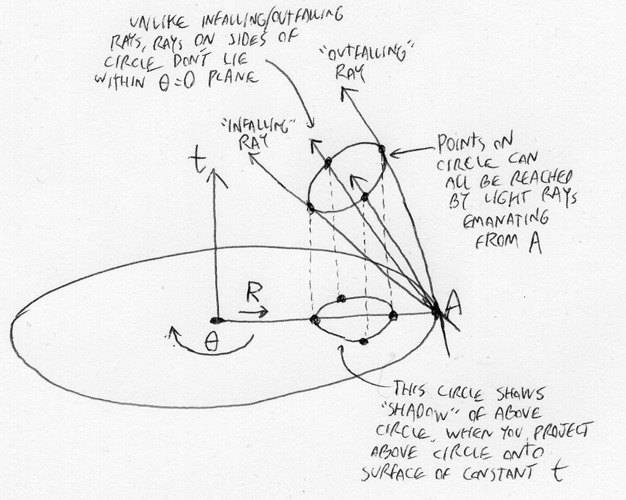 UNLIKE INFALLING/OUTFALLING
RAYS, RAYS ON SIDES OF
CIRCLE DON'T LIE
WITHIN θ=0 PLANE
"OUTFALLING"
RAY
"INFALLING"
RAY
POINTS ON
CIRCLE CAN
ALL BE REACHED
BY LIGHT RAYS
EMANATING
FROM A
t
R
A
θ
THIS CIRCLE SHOWS
"SHADOW" OF ABOVE
CIRCLE, WHEN YOU PROJECT
ABOVE CIRCLE ONTO
SURFACE OF CONSTANT t